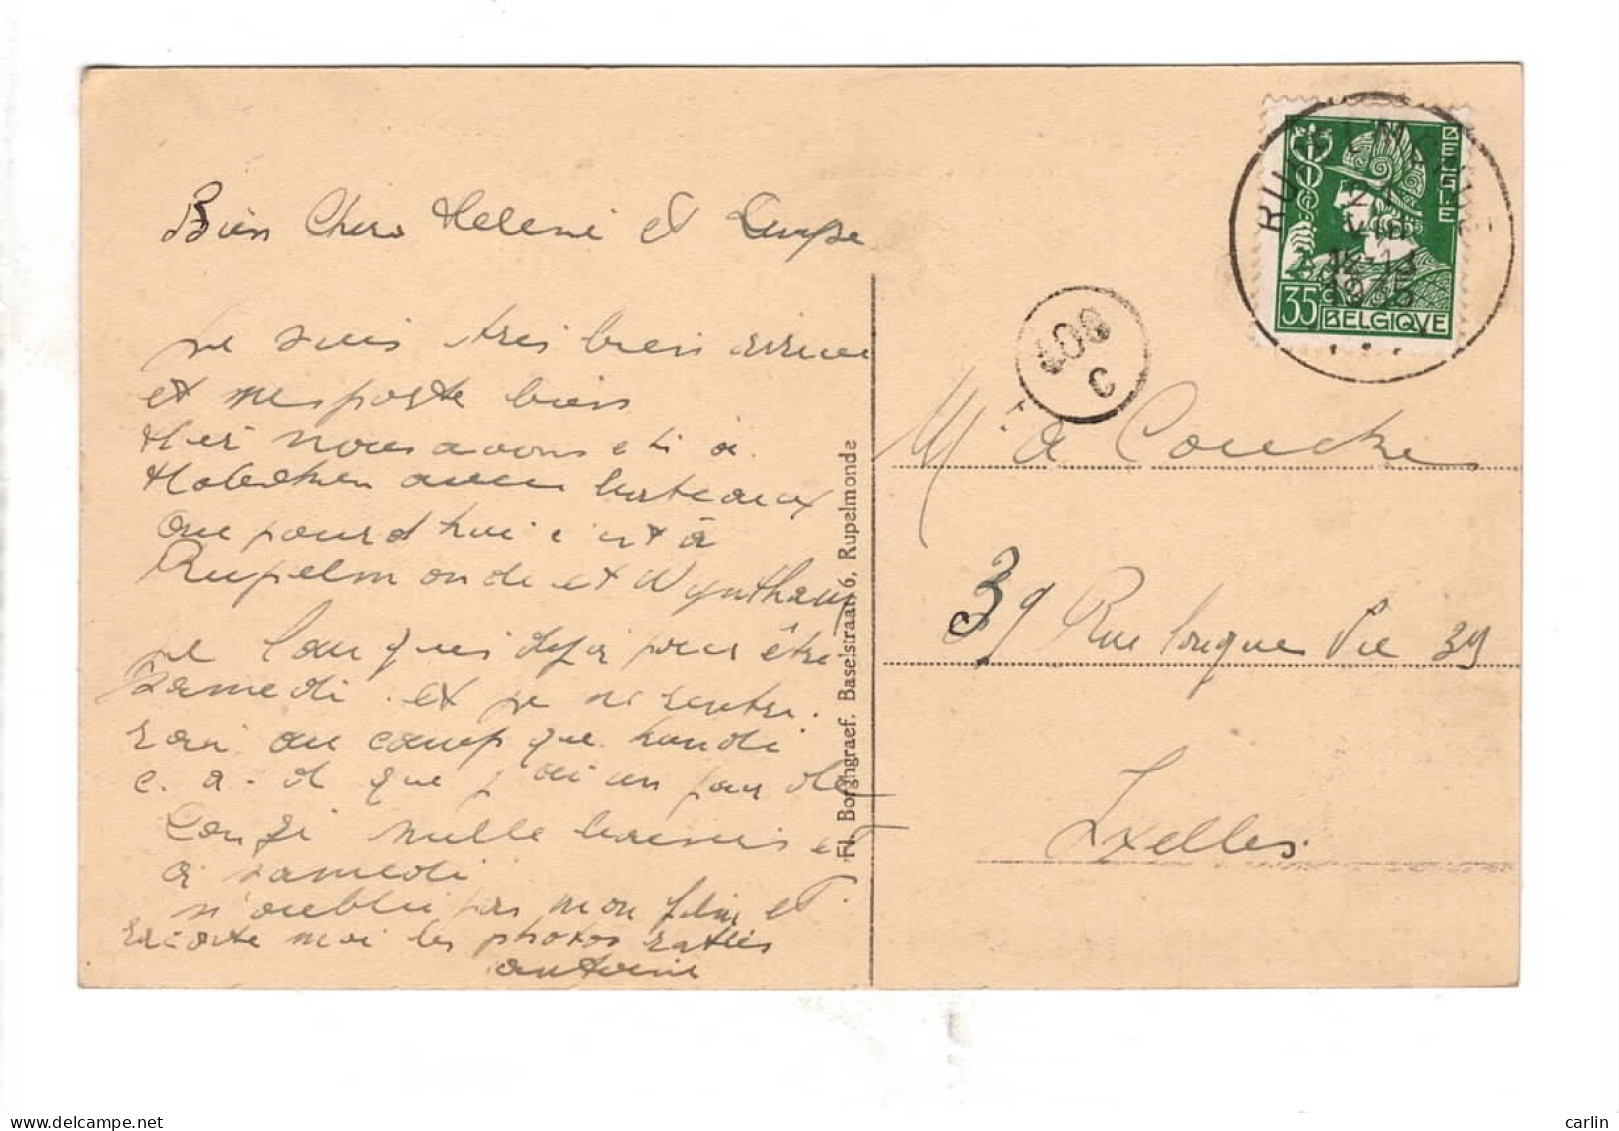 Bien Chers Helene et
je suis très bien arrivé
et me porte bien
Hier nous avons été à
Hoboken avec bateaux
aujourd'hui c'est à
Rupelmonde et
je languis deja pour être
samedi. et je ne rentre.
rai au camp que lundi
c. a. d que j'ai un jour de
Congé mille baisers et
à samedi
n'oublie pas mon film et
raconte moi les photos ratées
antoine
Fl. Borghgraef. Baselstraat 6, Rupelmonde
RUPELMONDE
VIII
12-13
1935
BELGIE
35c
BELGIQVE
408
C
Mr a Couche
39 Rue longue Vie 39
Ixelles.
delcampe.net
carlin